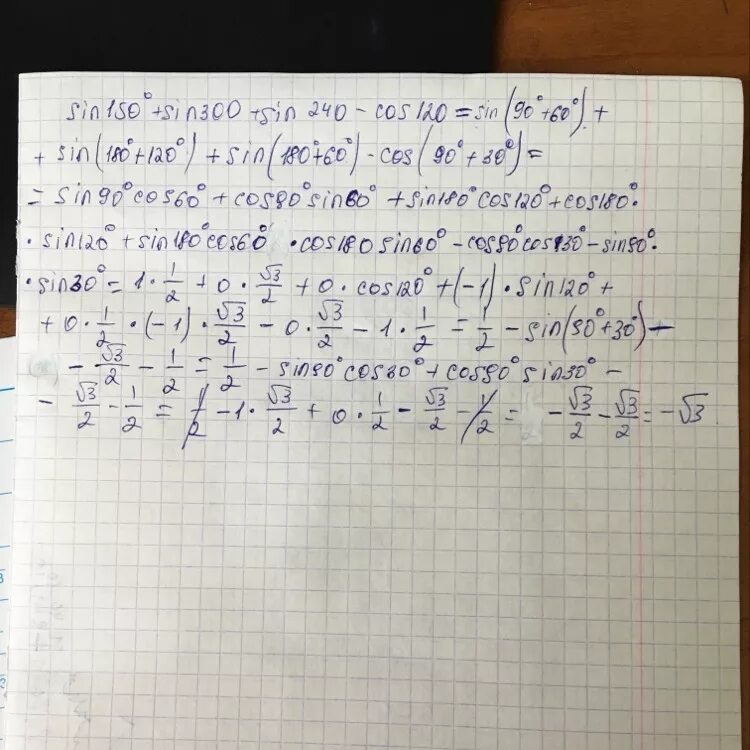 sin150°+sin300+sin 240-cos120=sin(90°+60°)+
+ sin(180°+120°) + sin(180°+60°)-cos(90°+30°)=
= sin90°cos60°+cos90°sin60° +sin180°cos120°+cos180°·
·sin120°+sin180°cos60° ·cos180sin60°-cos90°cos30°-sin90°·
·sin30°= 1·1/2 + 0·√3/2 + 0·cos120°+(-1)·sin120°+
+ 0·1/2·(-1)·√3/2 - 0·√3/2 - 1·1/2 = 1/2 - sin(90°+30°)-
- √3/2 - 1/2 = 1/2 - sin90°cos30°+cos90°sin30°-
- √3/2 - 1/2 = 1/2 - 1·√3/2 + 0·1/2 - √3/2 - 1/2 = - √3/2 - √3/2 = -√3